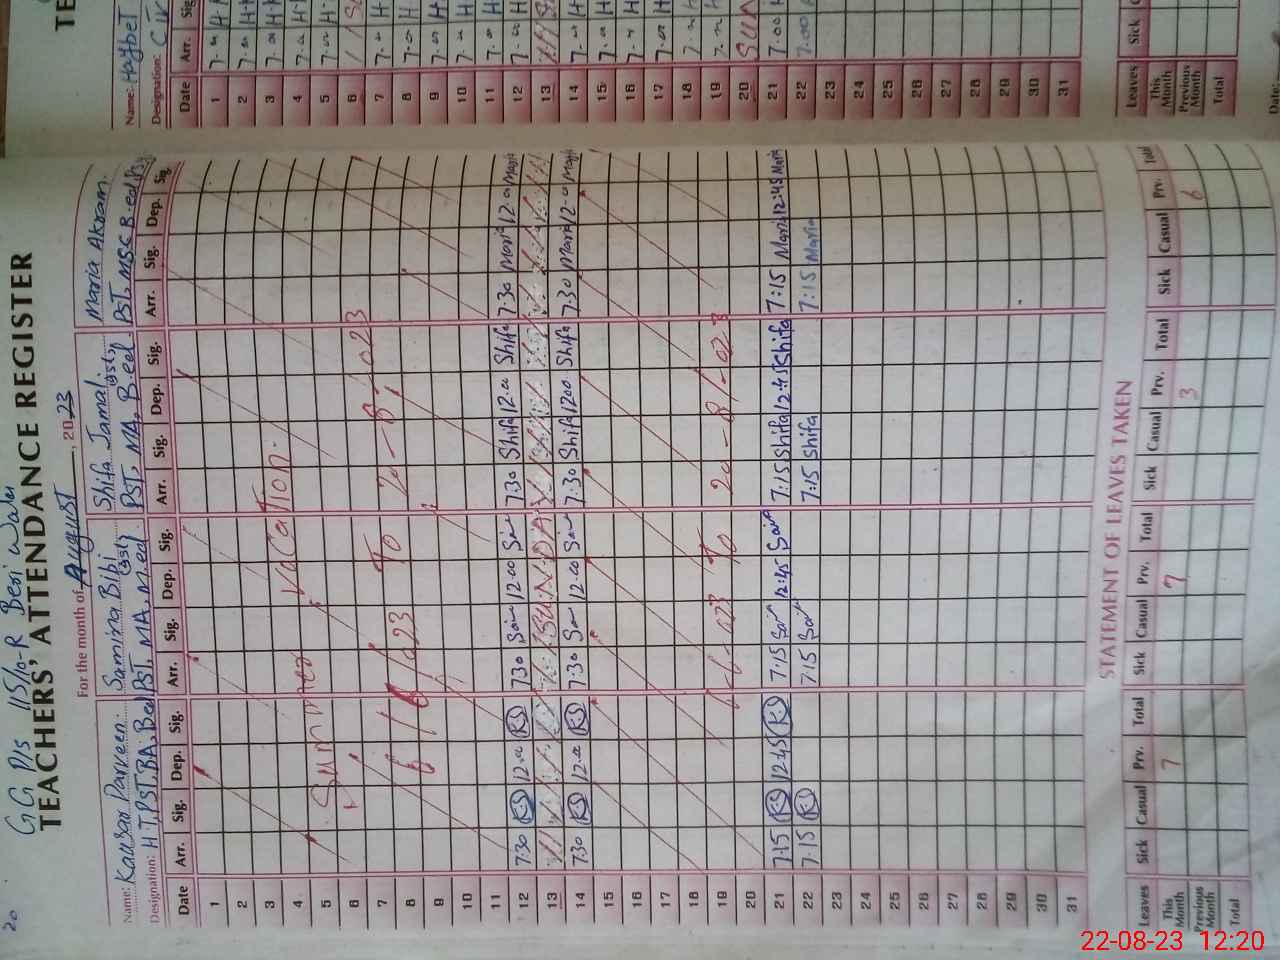 GG P/s 115/10-R Beri Wala
TEACHERS' ATTENDANCE REGISTER
For the month of August, 2023
Name: Kausar Parveen. Samina Bibi Shifa Jamal. Maria Akram.
Designation: H.T, PST, BA, Bed PST, MA, M.ed PST, MA, B.ed PST, MSC B.ed
Date Arr. Sig. Dep. Sig. Arr. Sig. Dep. Sig. Arr. Sig. Dep. Sig. Arr. Sig. Dep. Sig.
1
2
3
4
5
6
7
8
9
10
11
Summer Vacation
6/6/023 To 20-8-023
12 7:30 K.S 12.00 K.S 7:30 Sam 12.00 Sam 7.30 Shifa 12.00 Shifa 7.30 Maria 12.00 Maria
13 SUNDAY
14 7:30 K.S 12.00 K.S 7:30 Sam 12.00 Sam 7:30 Shifa 1200 Shifa 7.30 Maria 12.00 Maria
15
16
17
18
19
20
6-6-023 To 20-8-023
21 7:15 K.S 12:45 K.S 7:15 Sam 12:45 Sam 7:15 Shifa 12:45 Shifa 7:15 Maria 12:45 Maria
22 7:15 K.S 7:15 Sam 7:15 Shifa 7:15 Maria
23
24
25
26
27
28
29
30
31
STATEMENT OF LEAVES TAKEN
Leaves Sick Casual Prv. Total Sick Casual Prv. Total Sick Casual Prv. Total Sick Casual Prv. Total
This Month 7 7
Previous Month 3 6
Total
Name: Haybet
Designation:
Date Arr. Sig
1 7.00
2 7.00
3 7.00
4 7.00
5 7.00
6
7 7.00
8 7.00
9 7.00
10 7.00
11 7.00
12 7.00
13
14 7.00
15 7.00
16 7.00
17 7.00
18 7.00
19 7.00
20 SUN
21 7.00
22 7.00
23
24
25
26
27
28
29
30
31
Leaves Sick
This Month
Previous Month
Total
Date:
22-08-23 12:20